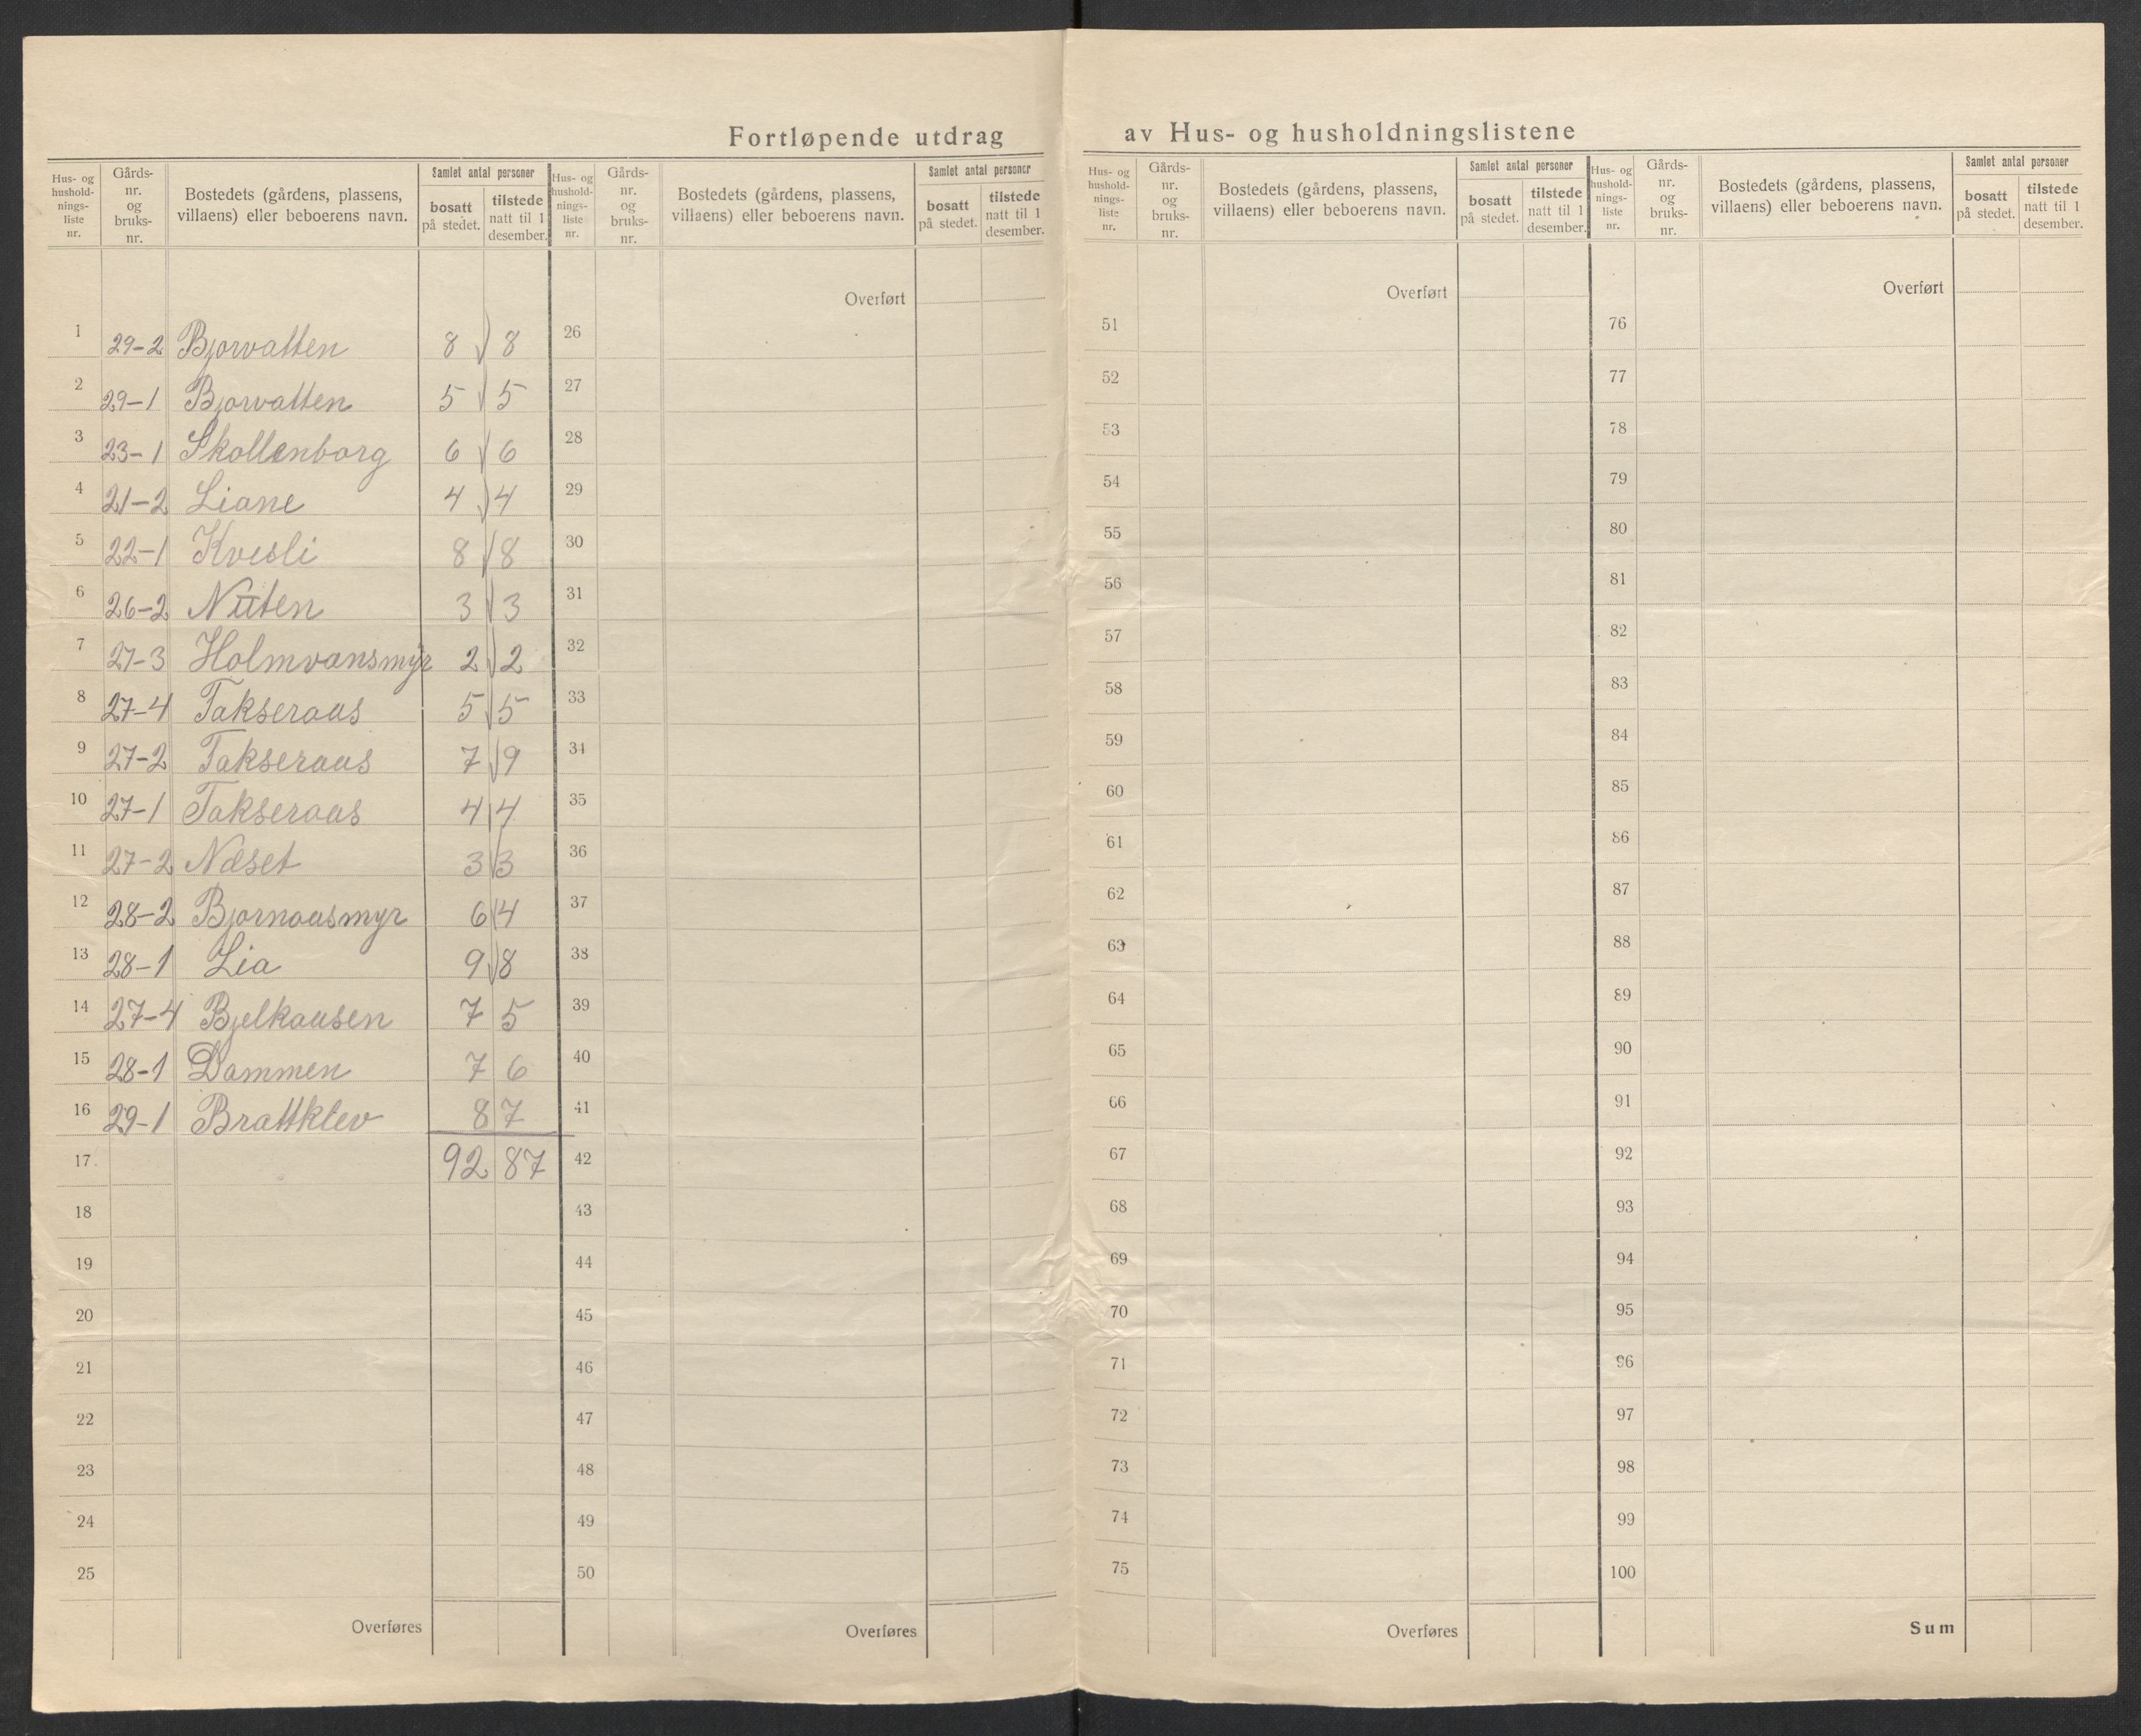 Fortløpende utdrag av Hus- og husholdningslistene
Hus- og hushold- nings- liste nr.
Gårds- nr. og bruks- nr.
Bostedets (gårdens, plassens, villaens) eller beboerens navn.
Samlet antal personer
bosatt på stedet.
tilstede natt til 1 desember.
Hus- og hushold- nings- liste nr.
Gårds- nr. og bruks- nr.
Bostedets (gårdens, plassens, villaens) eller beboerens navn.
Samlet antal personer
bosatt på stedet.
tilstede natt til 1 desember.
Hus- og hushold- nings- liste nr.
Gårds- nr. og bruks- nr.
Bostedets (gårdens, plassens, villaens) eller beboerens navn.
Samlet antal personer
bosatt på stedet.
tilstede natt til 1 desember.
Hus- og hushold- nings- liste nr.
Gårds- nr. og bruks- nr.
Bostedets (gårdens, plassens, villaens) eller beboerens navn.
Samlet antal personer
bosatt på stedet.
tilstede natt til 1 desember.
1 29-2 Bjorvatten 8 8
2 29-1 Bjorvatten 5 5
3 23-1 Skollenborg 6 6
4 21-2 Liane 4 4
5 22-1 Kvesli 8 8
6 26-2 Nuten 3 3
7 27-3 Holmvansmyr 2 2
8 27-4 Takseraas 5 5
9 27-2 Takseraas 7 9
10 27-1 Takseraas 4 4
11 27-2 Næset 3 3
12 28-2 Bjornaasmyr 6 4
13 28-1 Lia 9 8
14 27-4 Bjelkaasen 7 5
15 28-1 Dammen 7 6
16 29-1 Brattklev 8 7
17 92 87
18
19
20
21
22
23
24
25
Overføres
Overført
26
27
28
29
30
31
32
33
34
35
36
37
38
39
40
41
42
43
44
45
46
47
48
49
50
Overføres
Overført
51
52
53
54
55
56
57
58
59
60
61
62
63
64
65
66
67
68
69
70
71
72
73
74
75
Overføres
Overført
76
77
78
79
80
81
82
83
84
85
86
87
88
89
90
91
92
93
94
95
96
97
98
99
100
Sum